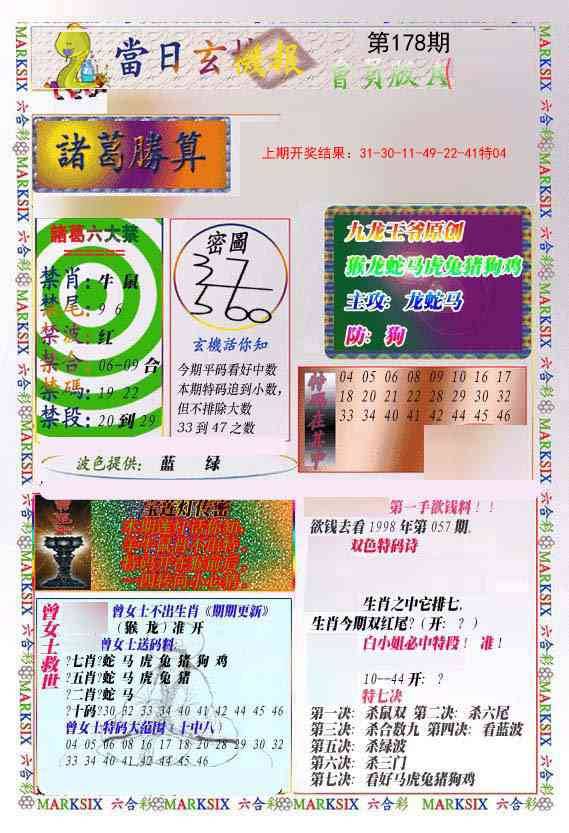 當日玄機報
第178期
會員版A
諸葛勝算
上期开奖结果：31-30-11-49-22-41特04
諸葛六大禁
禁肖：牛 鼠
禁尾：9 6
禁波：红
禁合：06-09 合
禁碼：19 22
禁段：20 到 29
密圖
37
560
玄機話你知
今期平码看好中数
本期特码追到小数，
但不排除大数
33 到 47 之数
九龙王爷原创
猴龙蛇马虎兔猪狗鸡
主攻： 龙蛇马
防： 狗
04 05 06 08 09 10 16 17
18 20 21 22 28 29 30 32
33 34 40 41 42 44 45 46
波色提供： 蓝 绿
宝莲灯传密
第一手欲钱料！！
欲钱去看 1998 年第 057 期.
双色特码诗
生肖之中它排七.
生肖今期双红尾?（ 开：？ ）
白小姐必中特段！ 准！
10--44 开： ?
特七决
第一决： 杀鼠双 第二决： 杀六尾
第三决： 杀合数九 第四决： 看蓝波
第五决： 杀绿波
第六决： 杀三门
第七决： 看好马虎兔猪狗鸡
曾女士救世
曾女士不出生肖《期期更新》
（猴 龙）准 开
曾女士送码料
?七肖?蛇 马 虎 兔 猪 狗 鸡
?五肖?蛇 马 虎 兔 猪
?二肖?蛇 马
?十码?30 32 33 34 40 41 42 44 45 46
曾女士特码大范围（十中八）
04 05 06 08 16 17 20 18 20 28 29 30 32
33 34 40 41 42 44 45 46
MARKSIX 六合彩